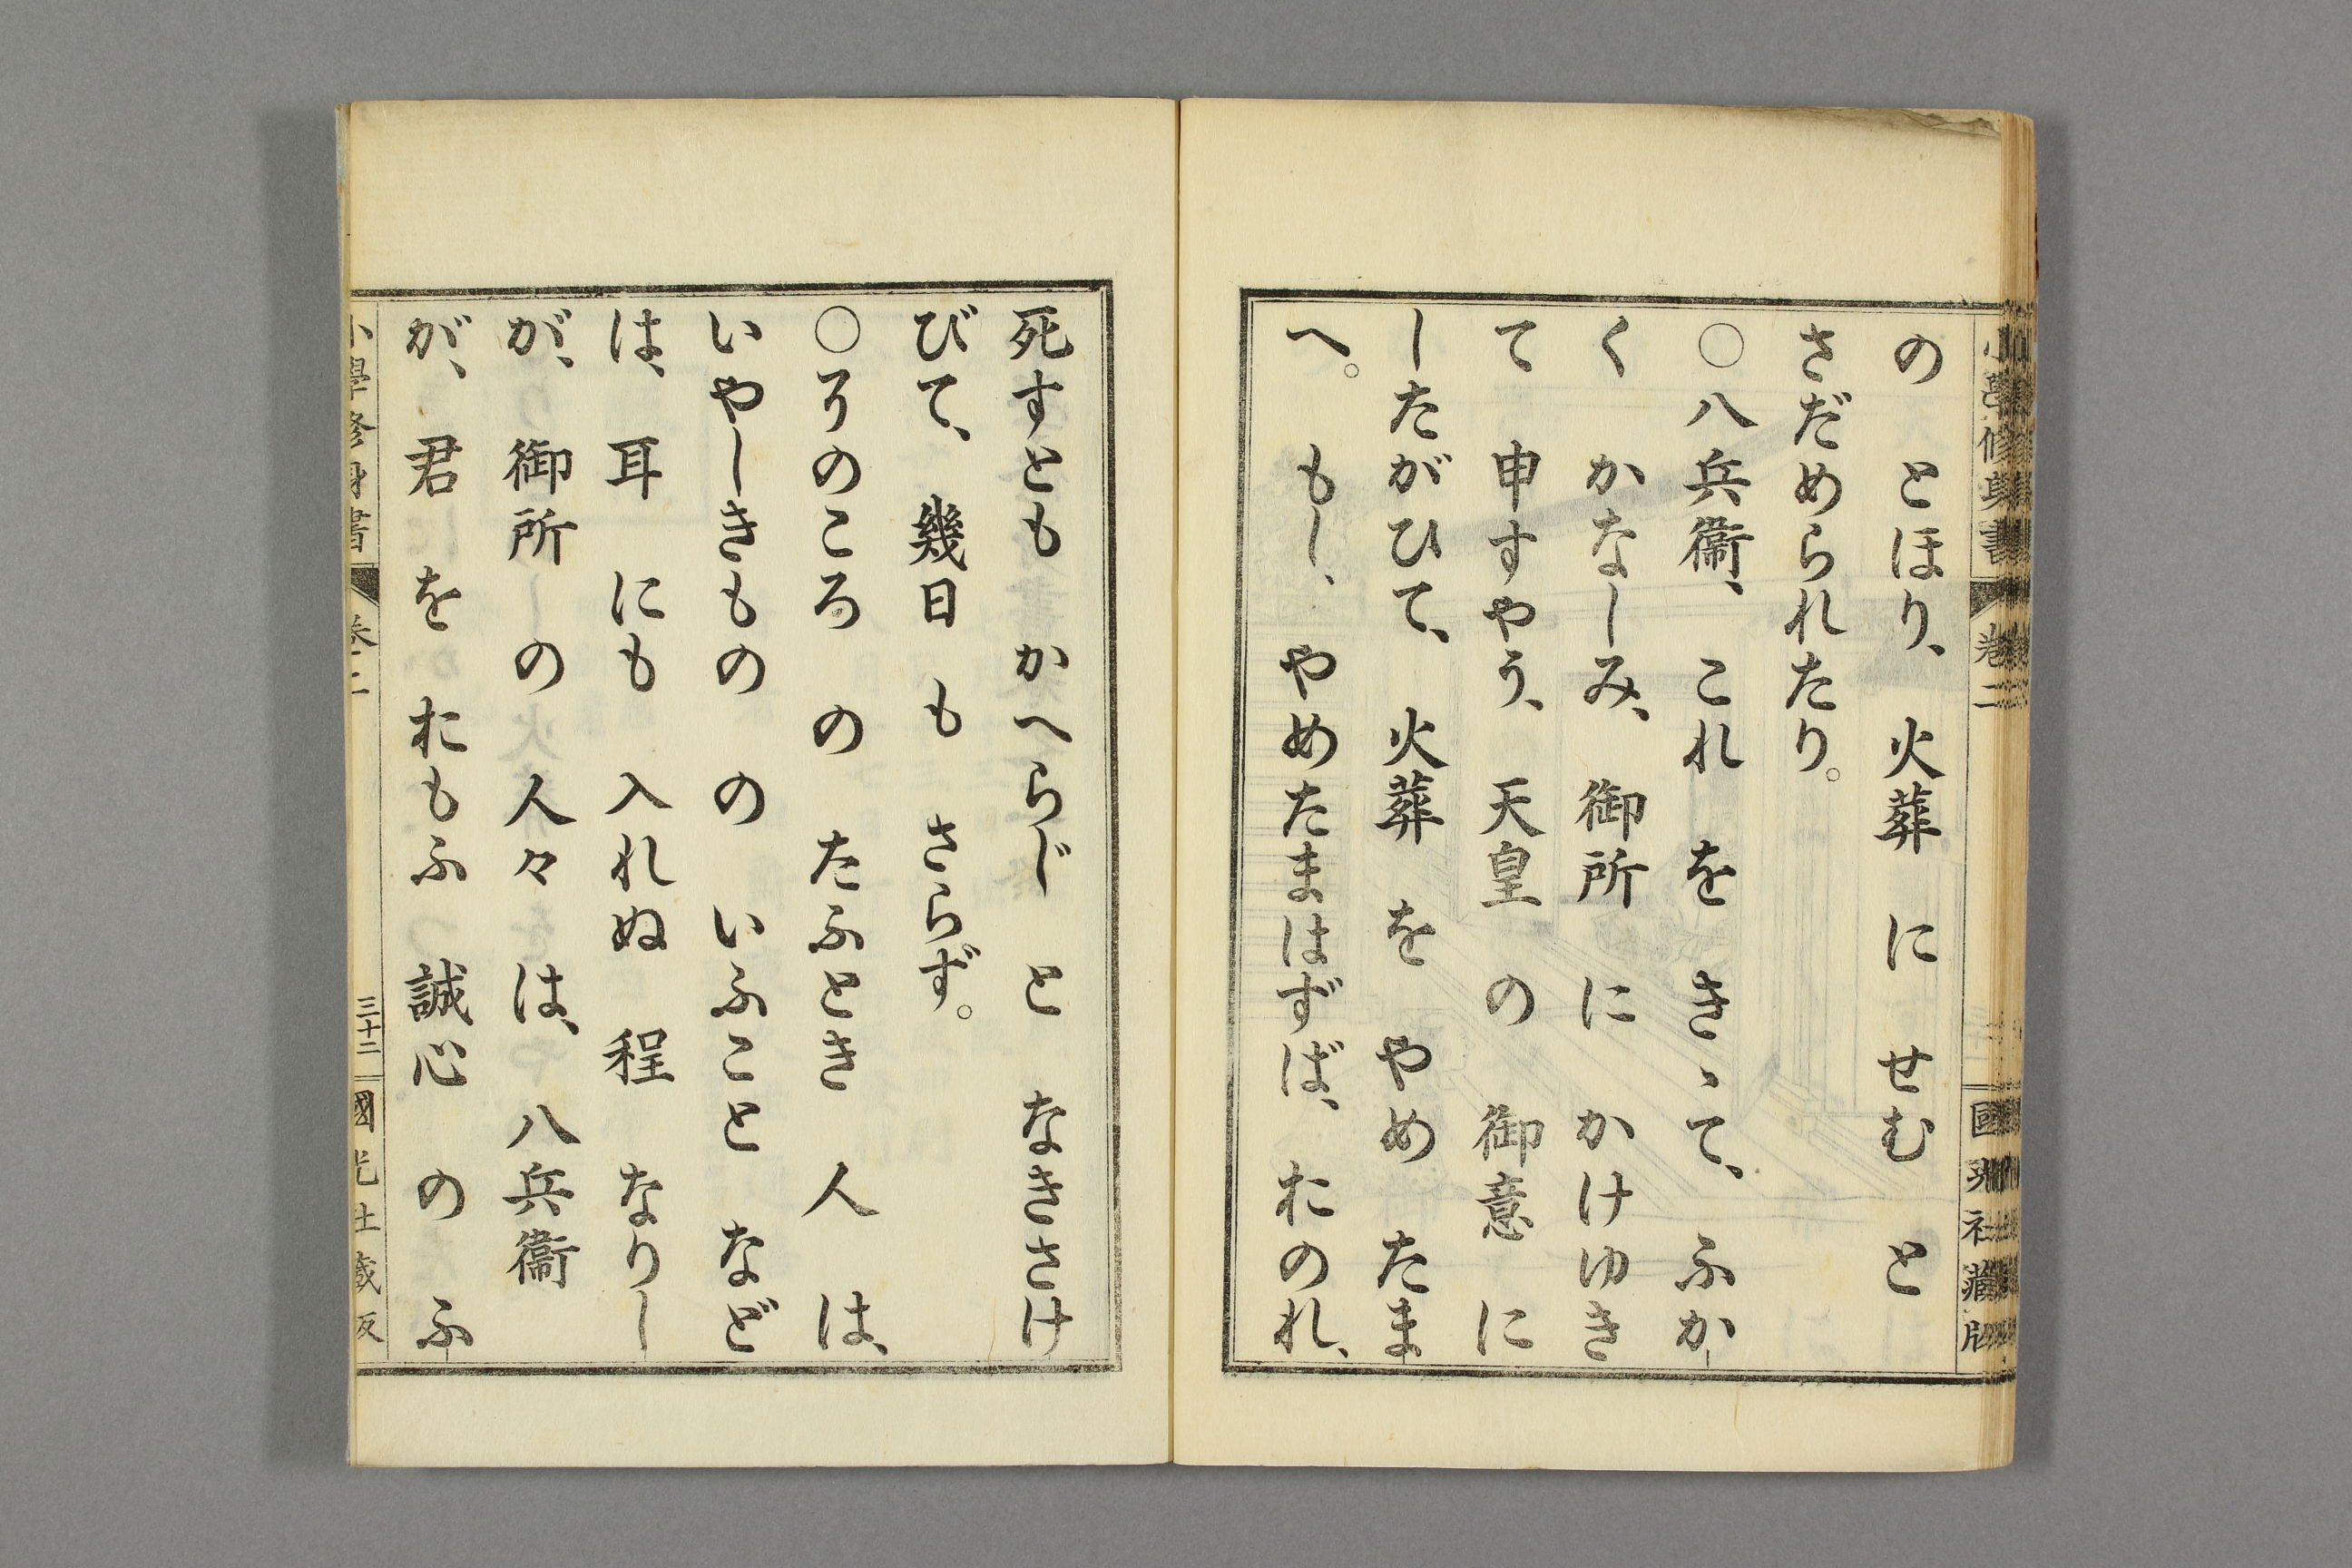 小學修身書 卷二 國光社藏版
の とほり、 火葬 に せむ と
さだめられたり。
○八兵衞、 これ を きゝて、 ふか
く かなしみ、 御所 に かけゆき
て 申すやう、 天皇 の 御意 に
したがひて、 火葬 を やめ たま
へ。 もし、 やめたまはずば、 たのれ、
死すとも かへらじ と なきさけ
びて、 幾日 も さらず。
○そのころ の たふとき 人 は、
いやしきもの の いふこと など
は、 耳 にも 入れぬ 程 なりし
が、 御所 の 人々 は、 八兵衞
が、 君 を おもふ 誠心 の ふ
小學修身書 卷二 三十二 國光社藏版